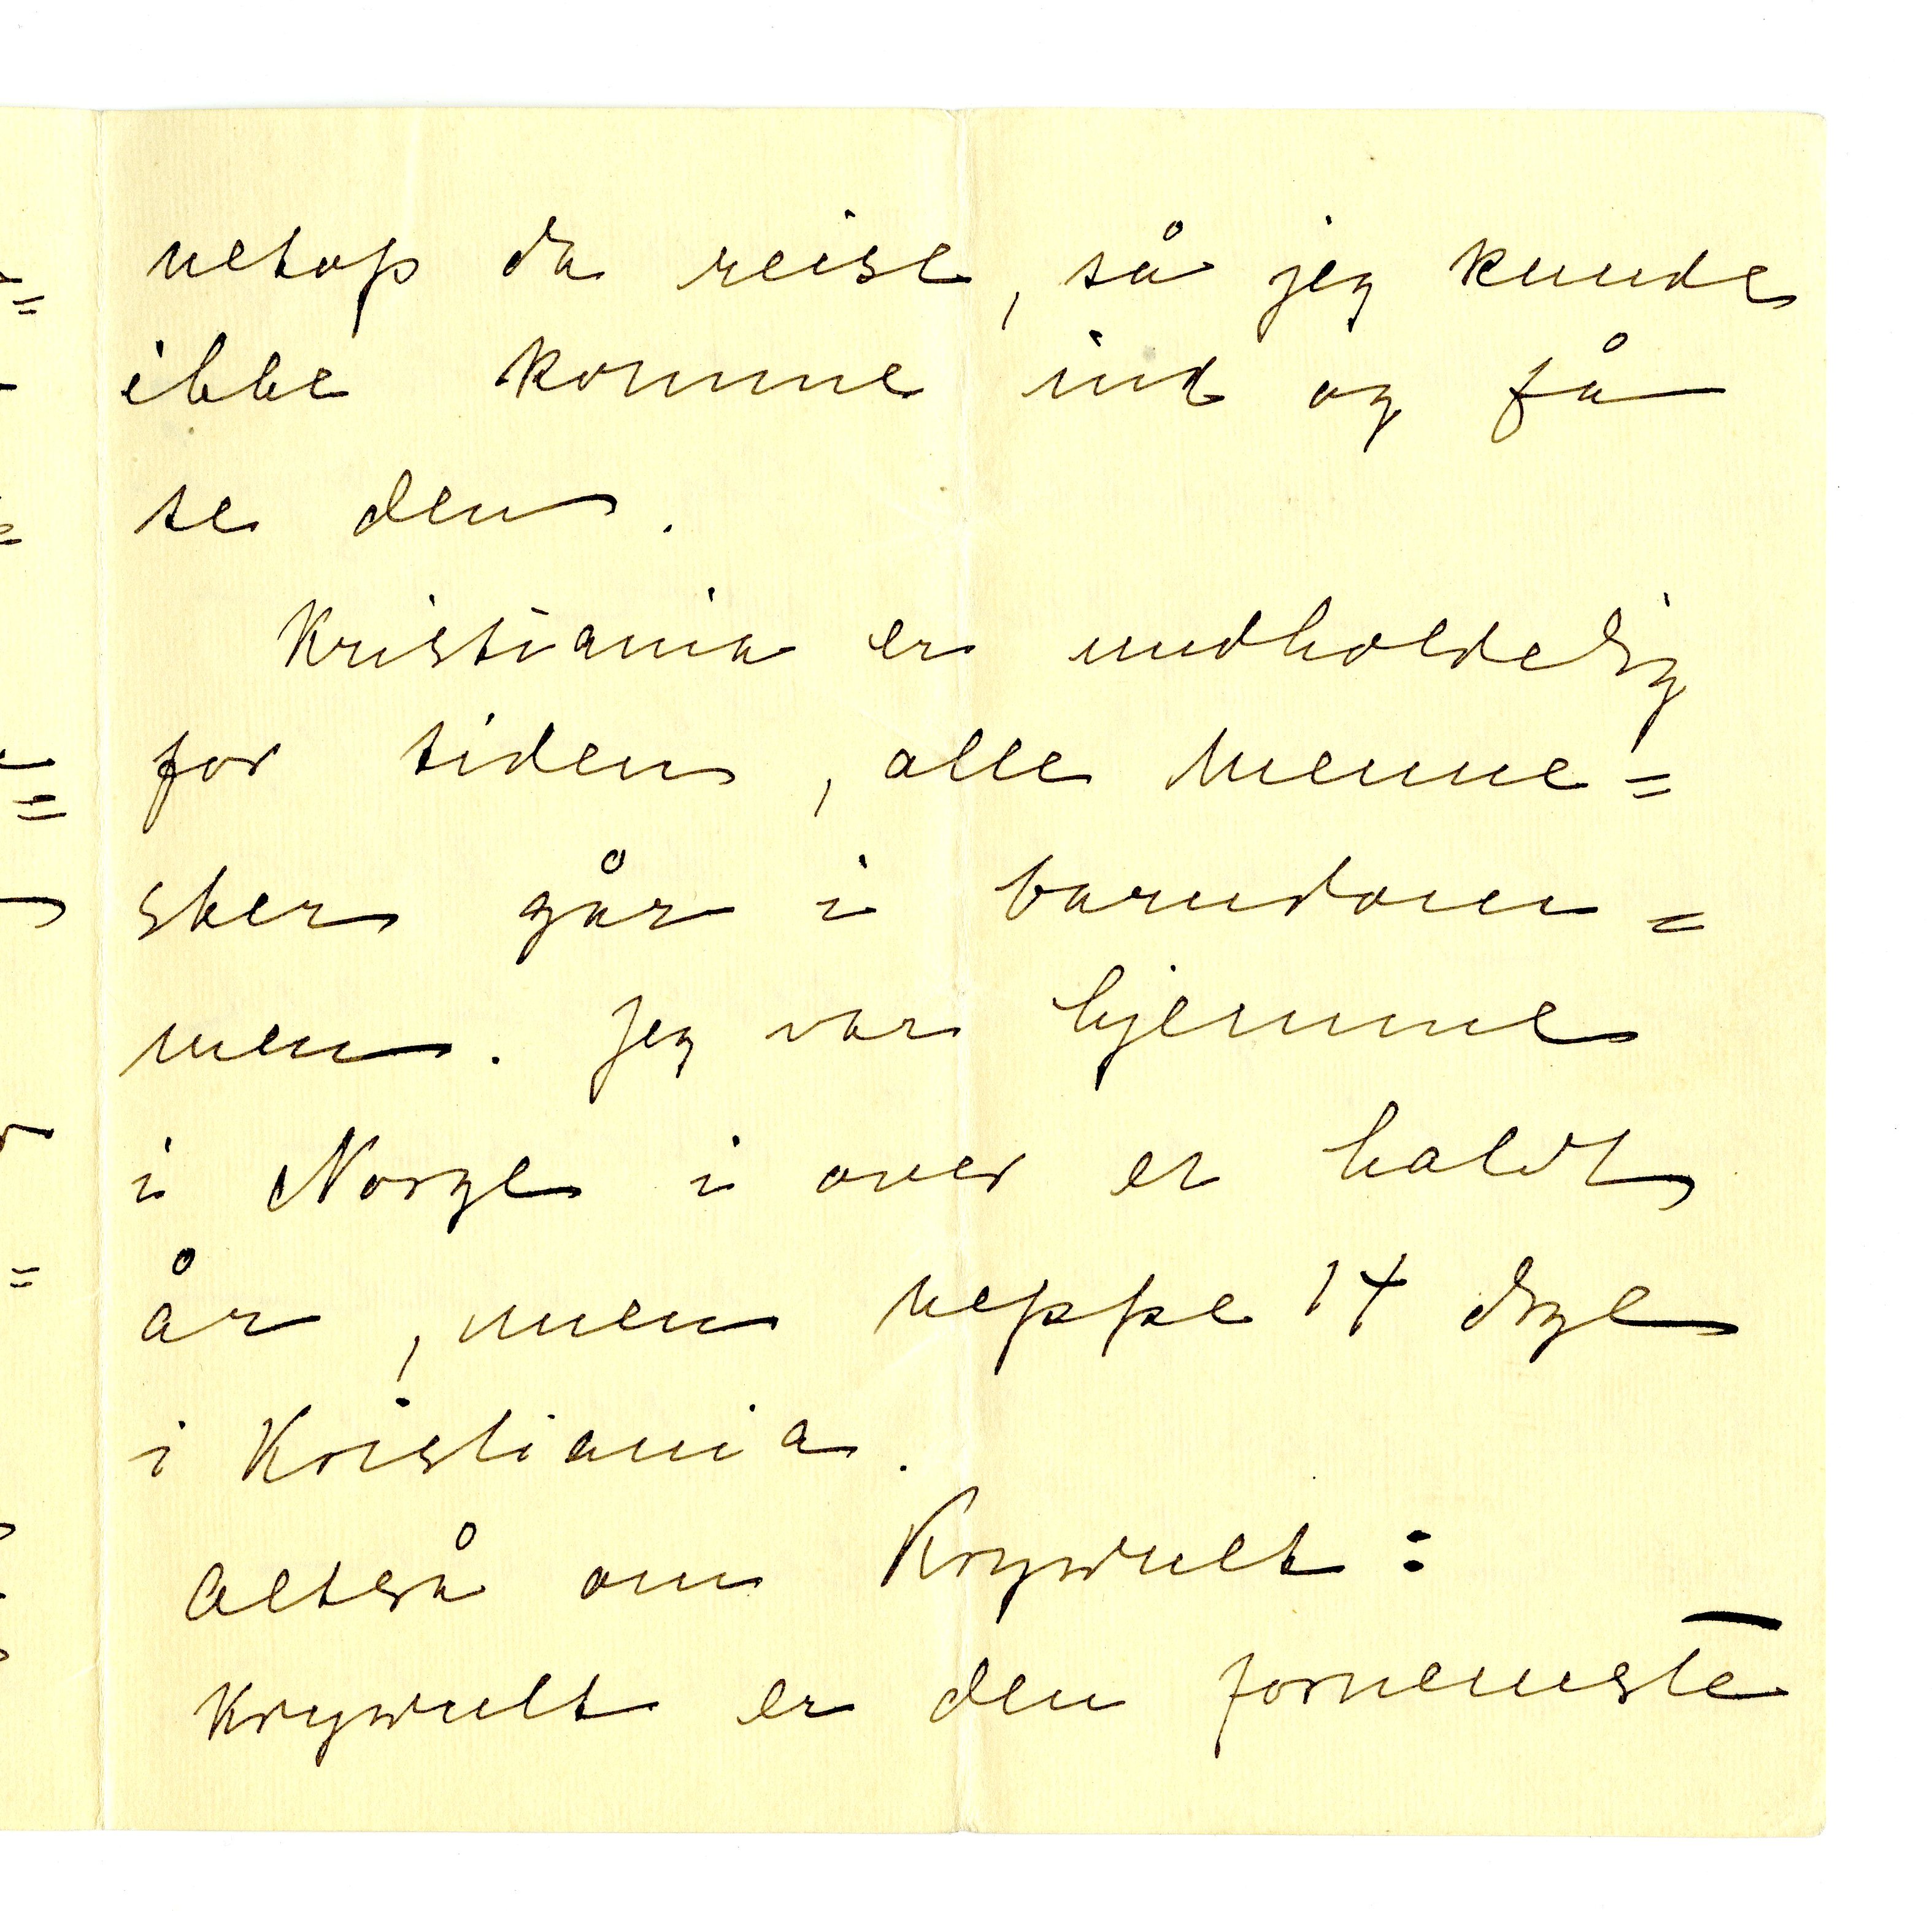 netop da reise, så jeg kunde
ikke komme ind og få
se den.
Kristiania er uudholdelig
for tiden, alle Menne=
sker går i barndom=
men. Jeg var hjemme
i Norge i over et halvt
år, men neppe 14 dage
i Kristiania.
Altså om Krywult:
Krywult er den fornemste